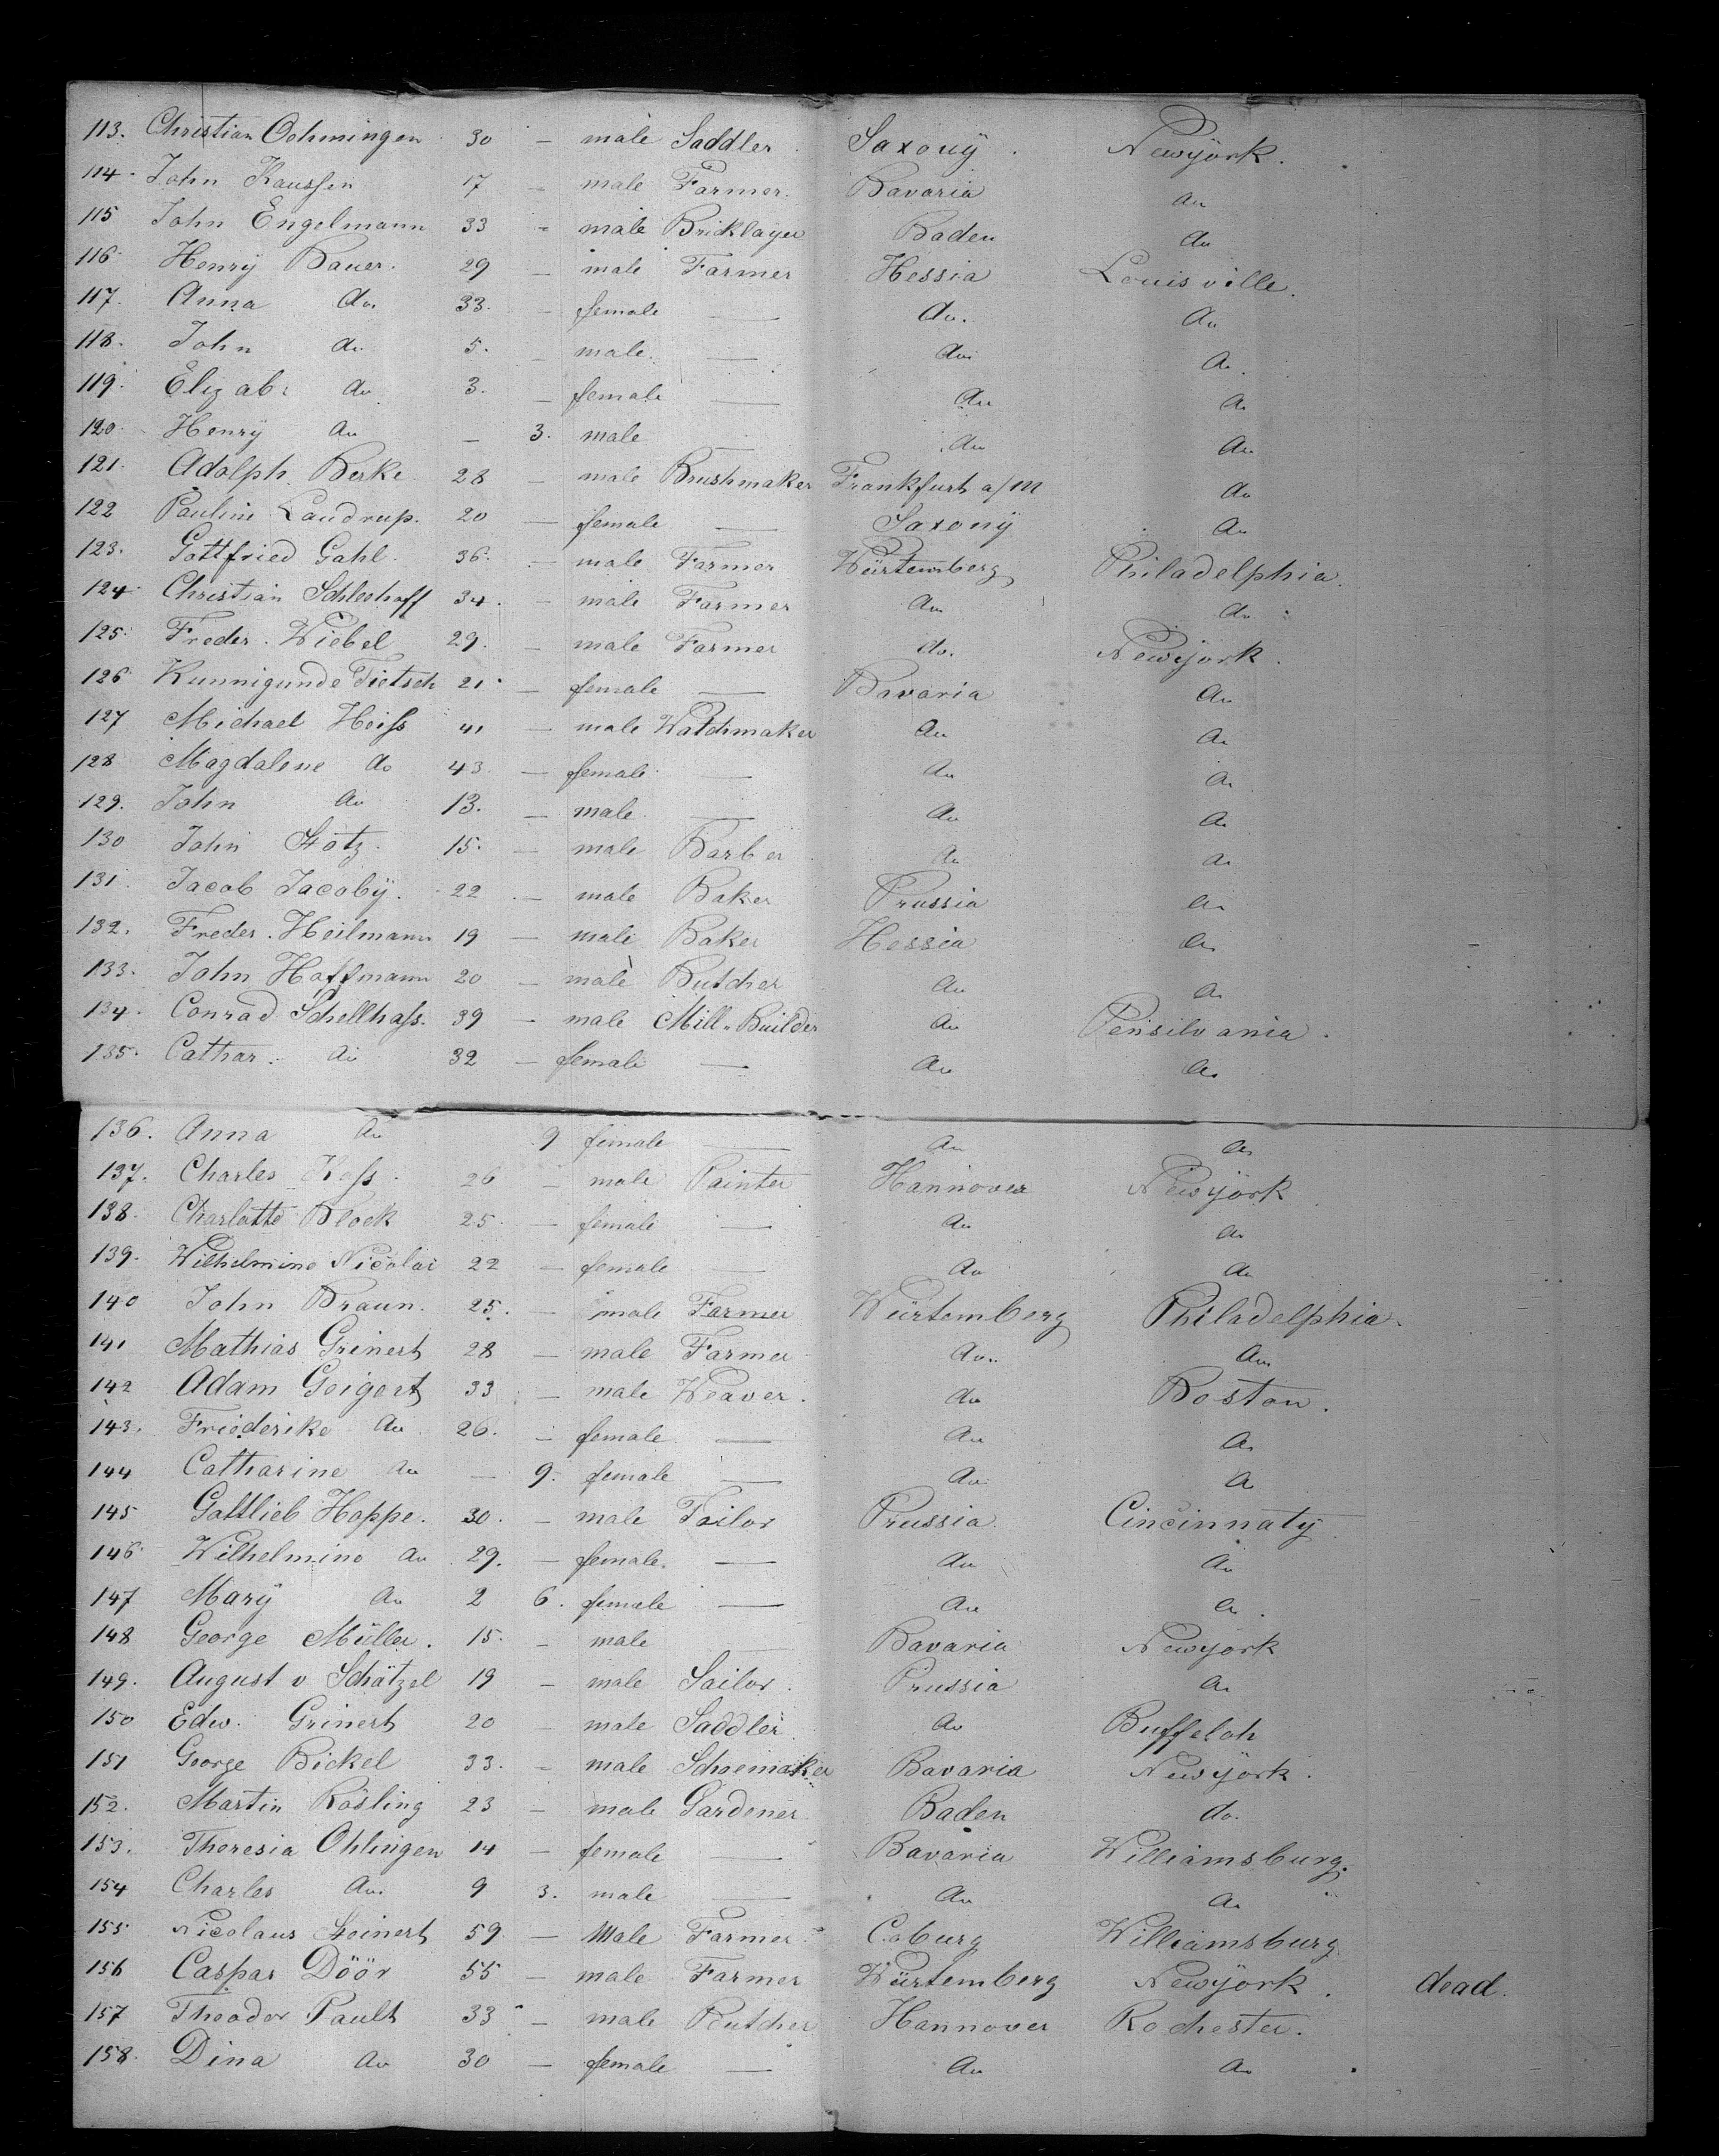 113. Christian Oehmingen 30 — male Saddler Saxony Newyork.
114. John Kaussen 17 — male Farmer. Bavaria do
115 John Engelmann 33 — male Bricklayer Baden do
116 Henry Bauer. 29 — male Farmer Hessia Louisville.
117. Anna do. 33. — female — do. do
118. John do 5. — male. — do. do.
119. Elizab: do 3. — female — do do
120. Henry do — 3. male — do do
121. Adolph Berke 28 — male Brushmaker Frankfurt a/M do
122 Pauline Laudrup. 20 — female — Saxony do
123. Gottfried Gahl. 36. — male Farmer Würtemberg Philadelphia.
124. Christian Schleehoff 34. — male Farmer do do
125. Freder. Wiebel 29. — male Farmer do. Newyork.
126 Kunnigunde Tietsch 21. — female — Bavaria do
127 Michael Heiss 41 — male Watchmaker do do
128 Magdalene do 43. — female — do do
129. John do 13. — male. — do do
130 John Stotz. 15. — male Barbier do do
131. Jacob Jacoby. 22 — male Baker Prussia do
132. Freder. Heilmann 19 — male Baker Hessia do
133. John Hoffmann 20 — male Butcher do do
134. Conrad Schellhass. 39 — male Mill-Builder do Pensilvania.
135. Cathar. do 32 — female — do do
136. Anna do 9 female — do do
137. Charles Koss. 26 — male Painter Hannover Newyork
138. Charlotte Block 25. — female — do do
139. Wilhelmine Nicolai 22 — female — do do
140 John Braun. 25. — male Farmer Würtemberg Philadelphia.
141 Mathias Grinert 28 — male Farmer do. do
142 Adam Geigert 33 — male Weaver. do Boston.
143. Friederike do. 26. — female — do do
144 Catharine do — 9. female — do do
145 Gottlieb Hoppe. 30. — male Tailor Prussia. Cincinnaty
146. Wilhelmine do 29. — female. — do do
147 Mary do 2 6. female — do do
148 George Müller. 15. — male — Bavaria Newyork
149. August v Schätzel 19 — male Sailor. Prussia do
150 Edw. Grinert 20 — male Saddler. do Buffeloh
151 George Bickel 33. — male Schoemaker Bavaria Newyork.
152. Martin Rösling 23 — male Gardener. Baden do.
153. Theresia Ohlingen 14 — female — Bavaria Williamsburg.
154 Charles do. 9 3. male — do do
155 Nicolaus Steinert 59 — male Farmer. Coburg Williamsburg
156 Caspar Döör 55 — male Farmer Würtemberg Newyork. dead.
157 Theodor Pault 33 — male Butcher Hannover Rochester.
158. Dina do 30 — female — do do